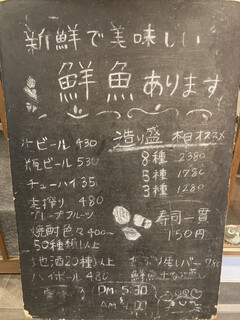 新鮮で美味しい
鮮魚あります
生ビール 430
瓶ビール 530
チューハイ 350
生搾り 480
グレープフルーツ
焼酎色々 400〜
50種類以上
地酒20種以上
ハイボール 480
造り盛 本日オススメ
8種 2380
5種 1780
3種 1280
寿司一貫
150円
PM 5:30
AM